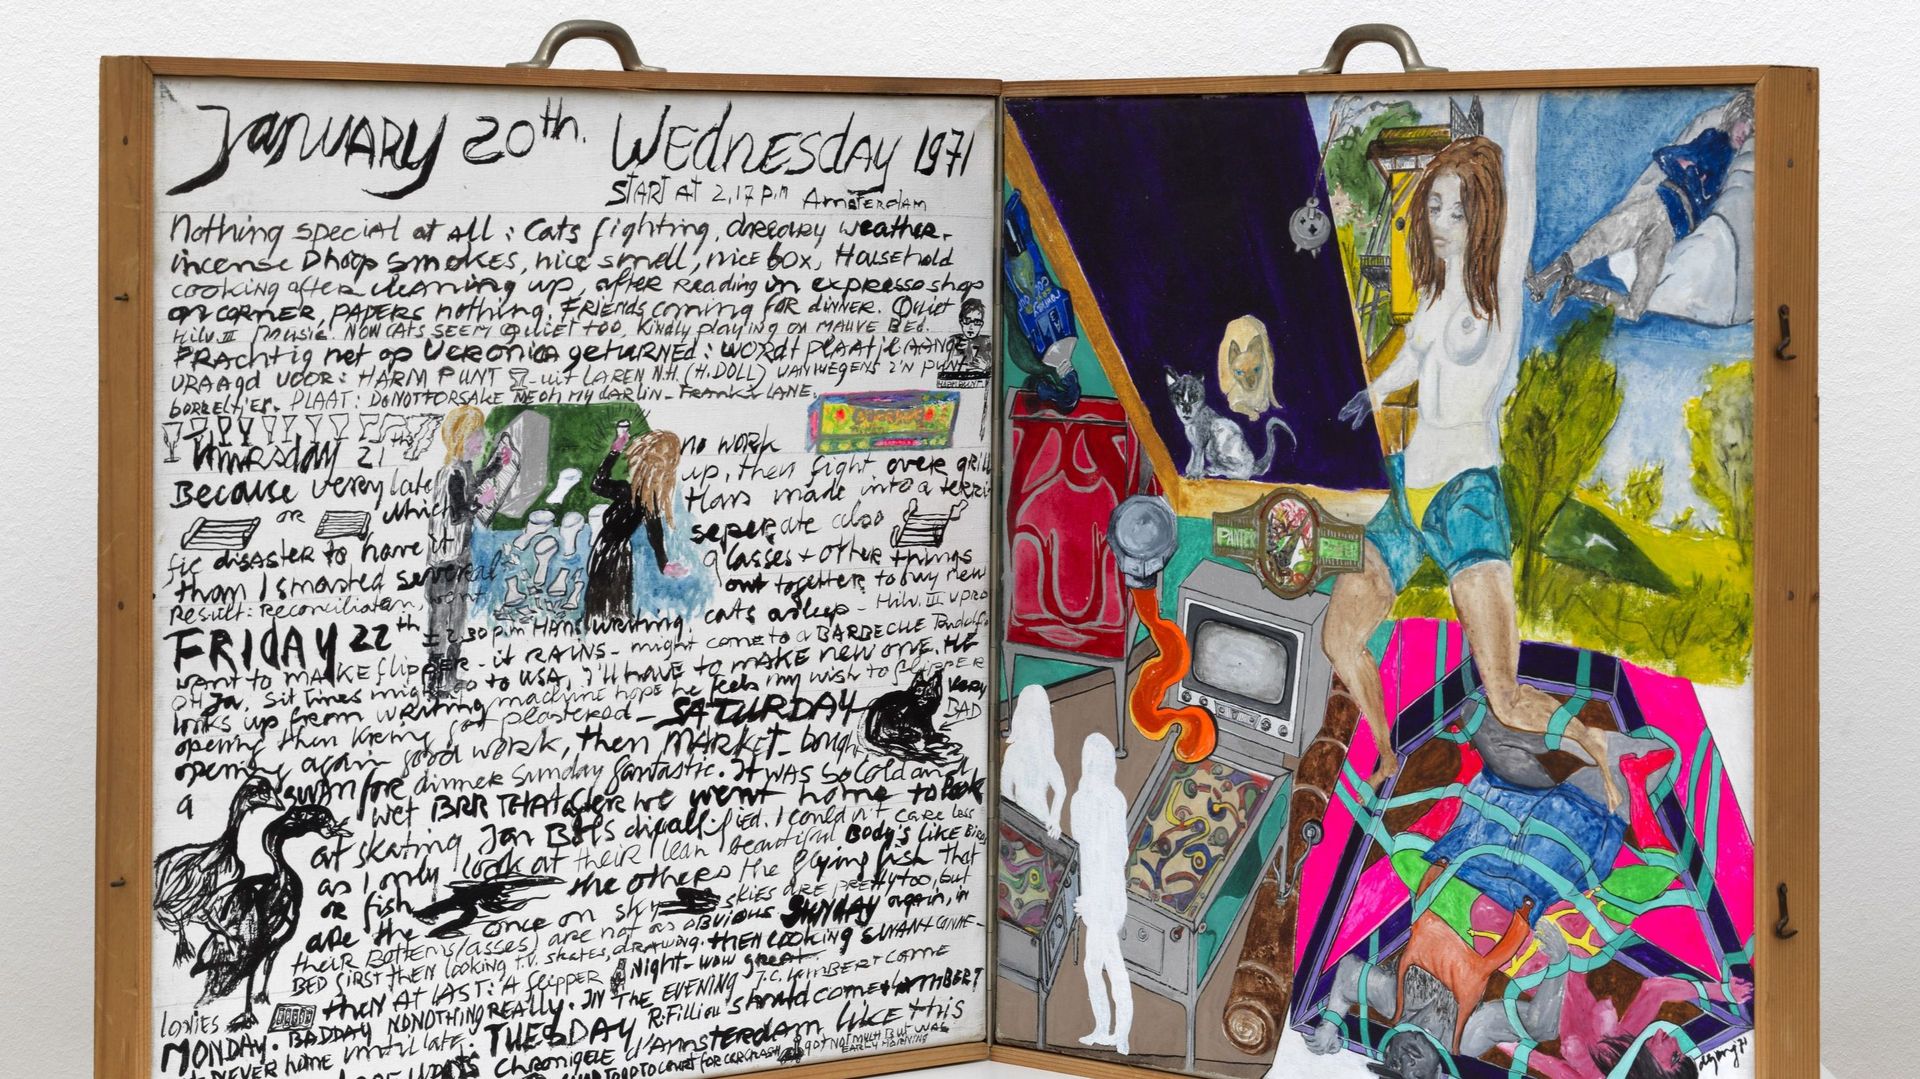 January 20th. Wednesday 1971
START AT 2,17 p.m Amsterdam
Nothing special at all : Cats fighting, dreary weather.
incense Dhoop smokes, nice smell, nice box, Household
cooking after cleaning up, after reading in expresso shop
on corner, papers nothing. Friends coming for dinner. Quiet
Hilv. III music. Now cats seem quiet too, kindly playing on mauve bed.
Prachtig net op Veronica geturned : wordt plaatje aange
vraagd voor : Harm Punt uit Laren N.H. (H. Doll) vanwegens z'n punt
borreltjes. Plaat : Do not forsake me oh my darlin - Frank Lane.
Thursday 21th
no work
Because very late
up, then fight over grill
or which
tions made into a terri
seperate also
fic disaster to have it
glasses + other things
than I smashed several
out together to buy new
Result: reconciliation, went
cats asleep - Hilv. III upro
FRIDAY 22th - 2,30 p.m Hans writing
want to make flipper - it rains - might come to a barbecue
off Ja. Sit times might go to USA, I'll have to make new one. He
looks up from writing machine hope he feels my wish to flipper
opening then kering for plastered - SATURDAY very
BAD
opening again good work, then MARKET - bought
a swan for dinner Sunday fantastic. It was so cold and
wet BRR THAT after we went home to look
at skating Jan Bols disqualified. I couldn't care less
as I only look at their lean beautiful Body's like Birds
or fish the others the flying fish that
are the once on sky skies are pretty too, but
their bottems (asses) are not as obvious SUNDAY again, in
BED first then looking T.V. skates, drawing. then cooking swan + conne-
Night - wow great
then AT LAST : A flipper
lonies
IN THE EVENING J.C. Lambert came
MONDAY. BADDAY NONOTHING REALLY.
R. Filliou should come + Lambert
NEVER HOME until late. TUESDAY
Chroniqele d'Amsterdam like this
got not much but was
early morning
PANTER
PANTER